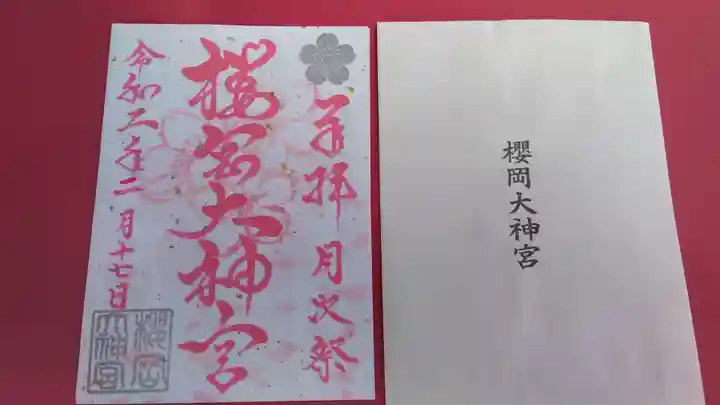 奉拝月次祭
櫻岡大神宮
令和二年二月十七日
櫻岡
大神宮
櫻岡大神宮